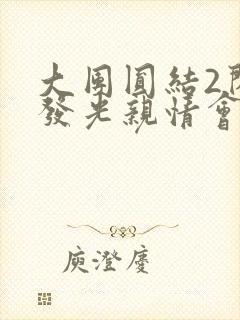 大團圓結2
發光親情會
庾澄慶